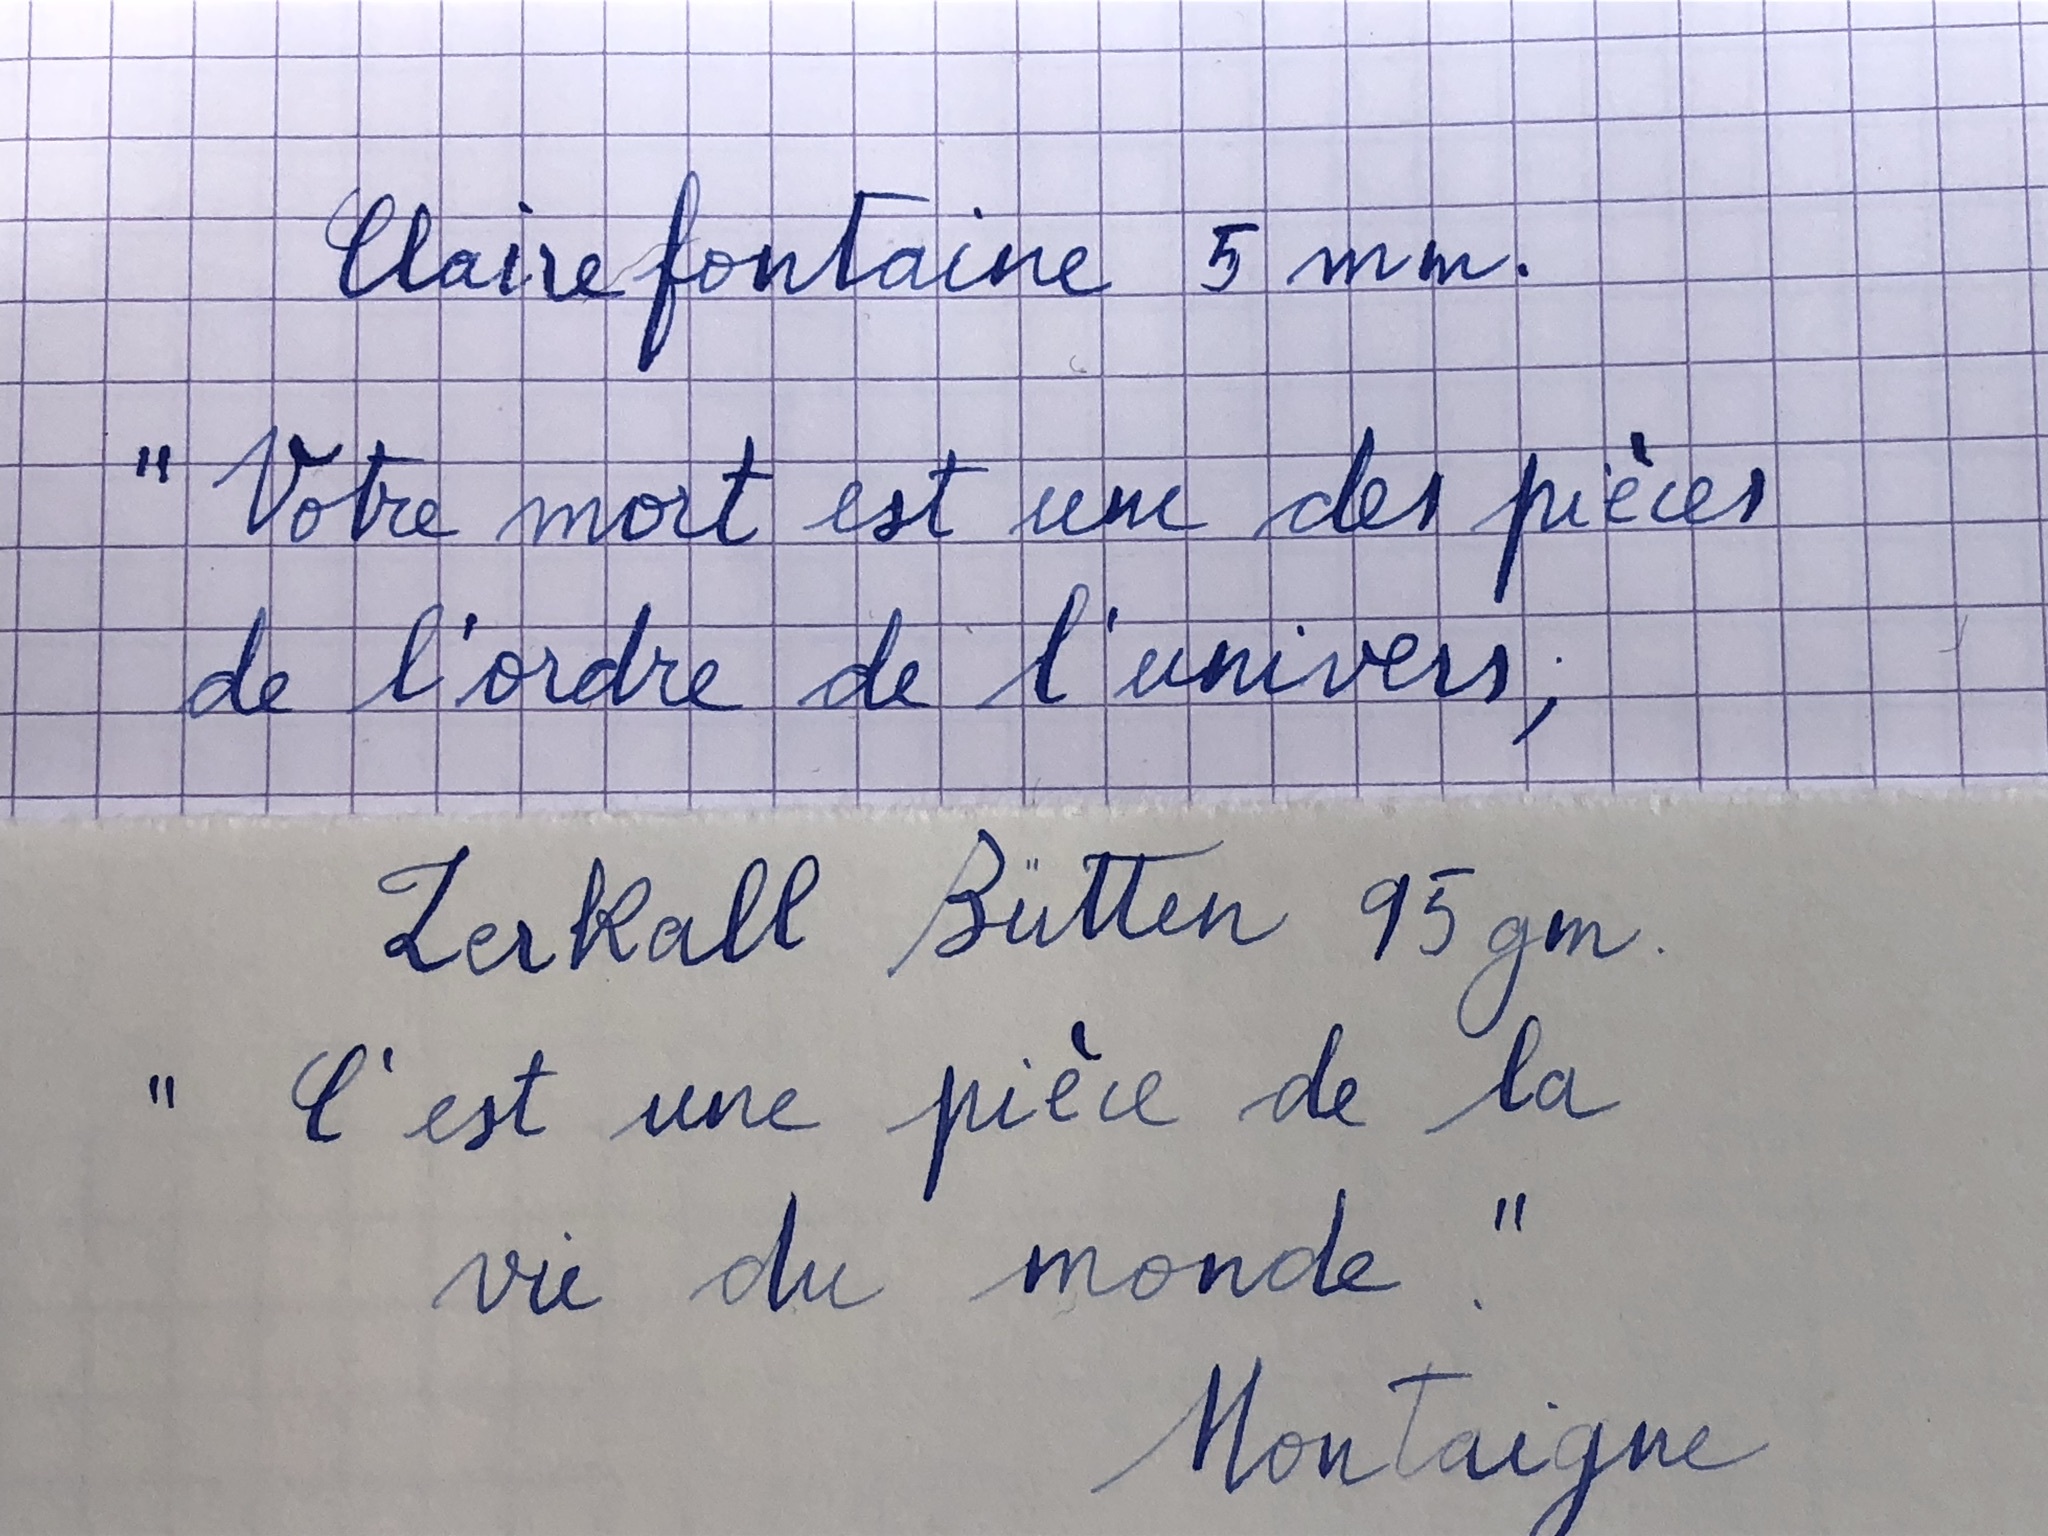 Clairefontaine 5 mm.
" Votre mort est une des pièces
de l'ordre de l'univers;
Zerkall Bütten 95 gm.
" C'est une pièce de la
vie du monde."
Montaigne